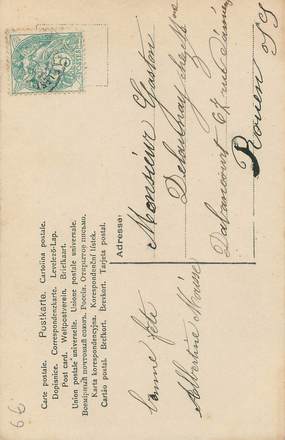 Postkarte. Carte postale. Cartolina postale.
Dopisnice. Correspondenzkarte. Levelező-Lap.
Post card. Weltpostverein. Briefkaart.
Union postale universelle. Unione postale universale.
Всемірный почтовый союзъ. Россія. Открытое письмо.
Karta korespondencyjna. Korespondenční lístek.
Cartão postal. Brefkort. Brevkort. Tarjeta postal.
Adresse:
Monsieur Gaston
Delaunay chez Mme
67 rue
Rouen
bonne fête
Albertine
66
5